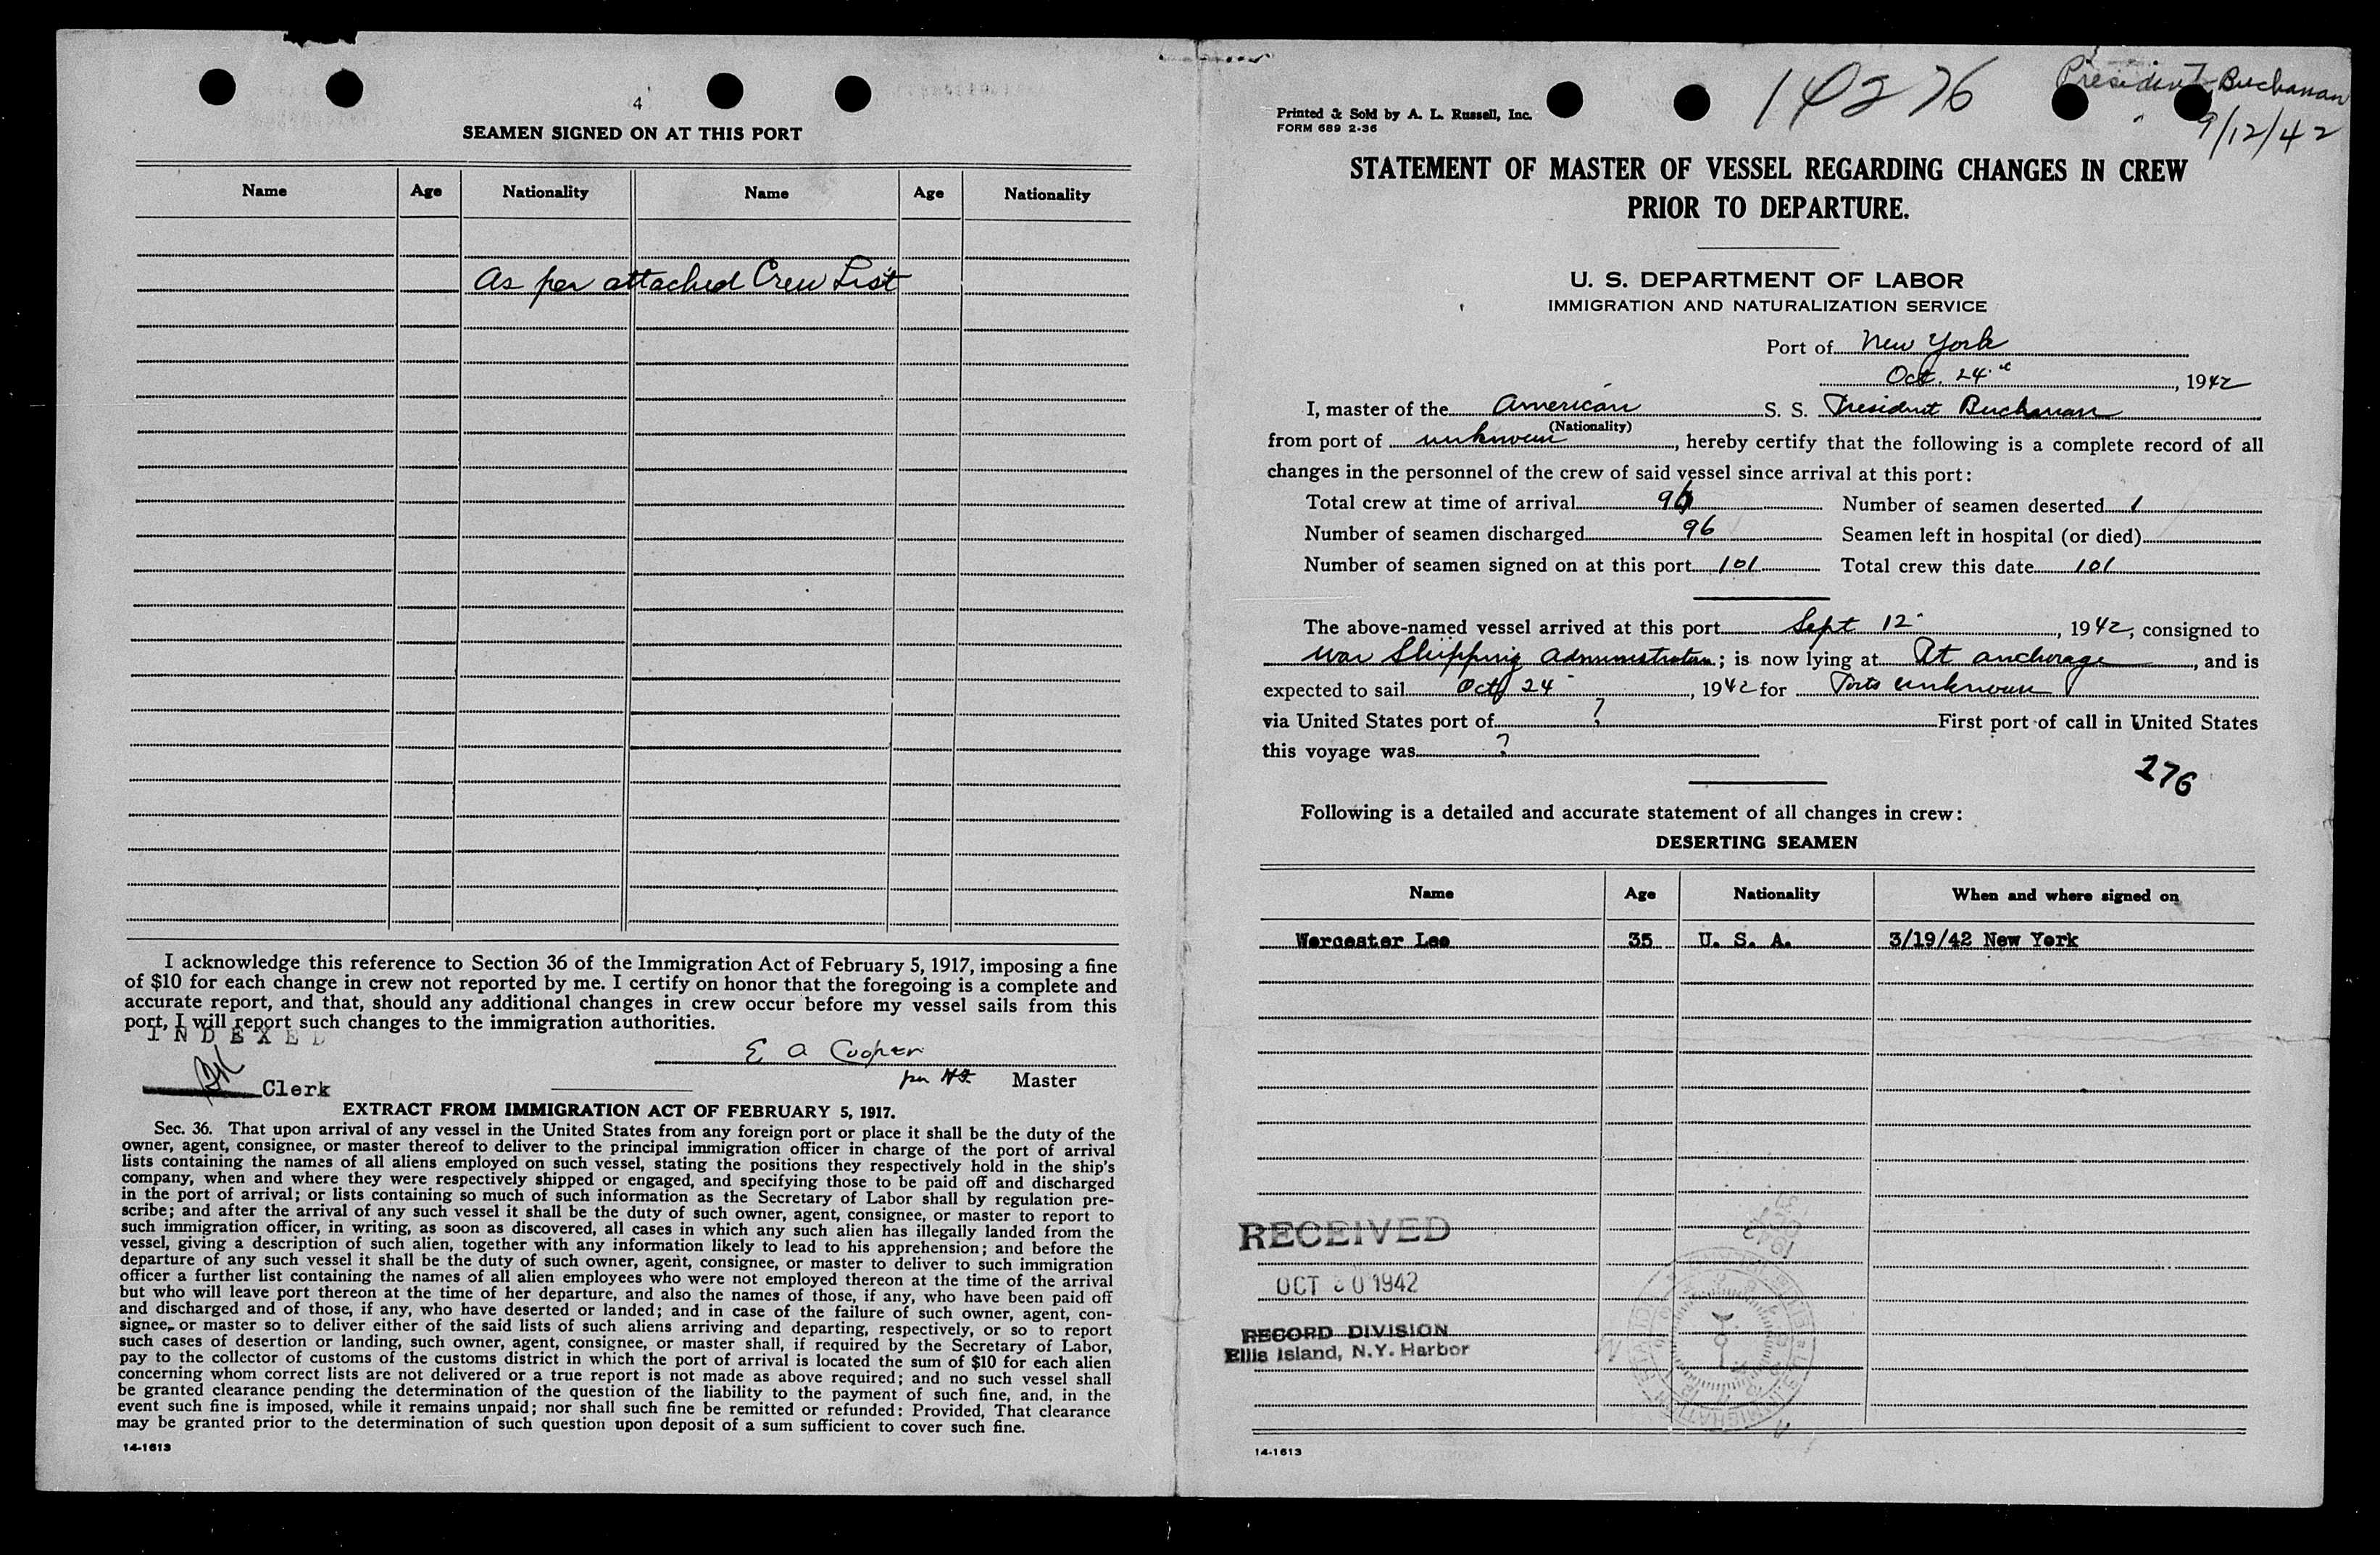 4
SEAMEN SIGNED ON AT THIS PORT
Name Age Nationality Name Age Nationality
As per attached Crew List
I acknowledge this reference to Section 36 of the Immigration Act of February 5, 1917, imposing a fine
of $10 for each change in crew not reported by me. I certify on honor that the foregoing is a complete and
accurate report, and that, should any additional changes in crew occur before my vessel sails from this
port, I will report such changes to the immigration authorities.
INDEXED
E A Cooper
Clerk
per Master
EXTRACT FROM IMMIGRATION ACT OF FEBRUARY 5, 1917.
Sec. 36. That upon arrival of any vessel in the United States from any foreign port or place it shall be the duty of the
owner, agent, consignee, or master thereof to deliver to the principal immigration officer in charge of the port of arrival
lists containing the names of all aliens employed on such vessel, stating the positions they respectively hold in the ship's
company, when and where they were respectively shipped or engaged, and specifying those to be paid off and discharged
in the port of arrival; or lists containing so much of such information as the Secretary of Labor shall by regulation pre-
scribe; and after the arrival of any such vessel it shall be the duty of such owner, agent, consignee, or master to report to
such immigration officer, in writing, as soon as discovered, all cases in which any such alien has illegally landed from the
vessel, giving a description of such alien, together with any information likely to lead to his apprehension; and before the
departure of any such vessel it shall be the duty of such owner, agent, consignee, or master to deliver to such immigration
officer a further list containing the names of all alien employees who were not employed thereon at the time of the arrival
but who will leave port thereon at the time of her departure, and also the names of those, if any, who have been paid off
and discharged and of those, if any, who have deserted or landed; and in case of the failure of such owner, agent, con-
signee, or master so to deliver either of the said lists of such aliens arriving and departing, respectively, or so to report
such cases of desertion or landing, such owner, agent, consignee, or master shall, if required by the Secretary of Labor,
pay to the collector of customs of the customs district in which the port of arrival is located the sum of $10 for each alien
concerning whom correct lists are not delivered or a true report is not made as above required; and no such vessel shall
be granted clearance pending the determination of the question of the liability to the payment of such fine, and, in the
event such fine is imposed, while it remains unpaid; nor shall such fine be remitted or refunded: Provided, That clearance
may be granted prior to the determination of such question upon deposit of a sum sufficient to cover such fine.
14-1613
14276
President Buchanan
9/12/42
Printed & Sold by A. L. Russell, Inc.
FORM 689 2-36
STATEMENT OF MASTER OF VESSEL REGARDING CHANGES IN CREW
PRIOR TO DEPARTURE.
U. S. DEPARTMENT OF LABOR
IMMIGRATION AND NATURALIZATION SERVICE
Port of New York
Oct. 24th, 1942
I, master of the American S. S. President Buchanan
(Nationality)
from port of unknown, hereby certify that the following is a complete record of all
changes in the personnel of the crew of said vessel since arrival at this port:
Total crew at time of arrival Number of seamen deserted 1
Number of seamen discharged 96 Seamen left in hospital (or died)
Number of seamen signed on at this port 101 Total crew this date 101
The above-named vessel arrived at this port Sept 12, 1942, consigned to
War Shipping Administration; is now lying at At anchorage, and is
expected to sail Oct 24, 1942 for Ports unknown
via United States port of ? First port of call in United States
this voyage was ?
276
Following is a detailed and accurate statement of all changes in crew:
DESERTING SEAMEN
Name Age Nationality When and where signed on
Worcester Lee 35 U. S. A. 3/19/42 New York
RECEIVED
OCT 30 1942
RECORD DIVISION
Ellis Island, N.Y. Harbor
14-1613